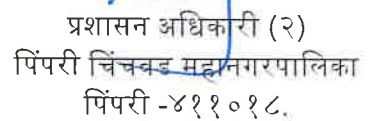 प्रशासन अधिकारी (२)
पिंपरी चिंचवड महानगरपालिका
पिंपरी -४११०१८.